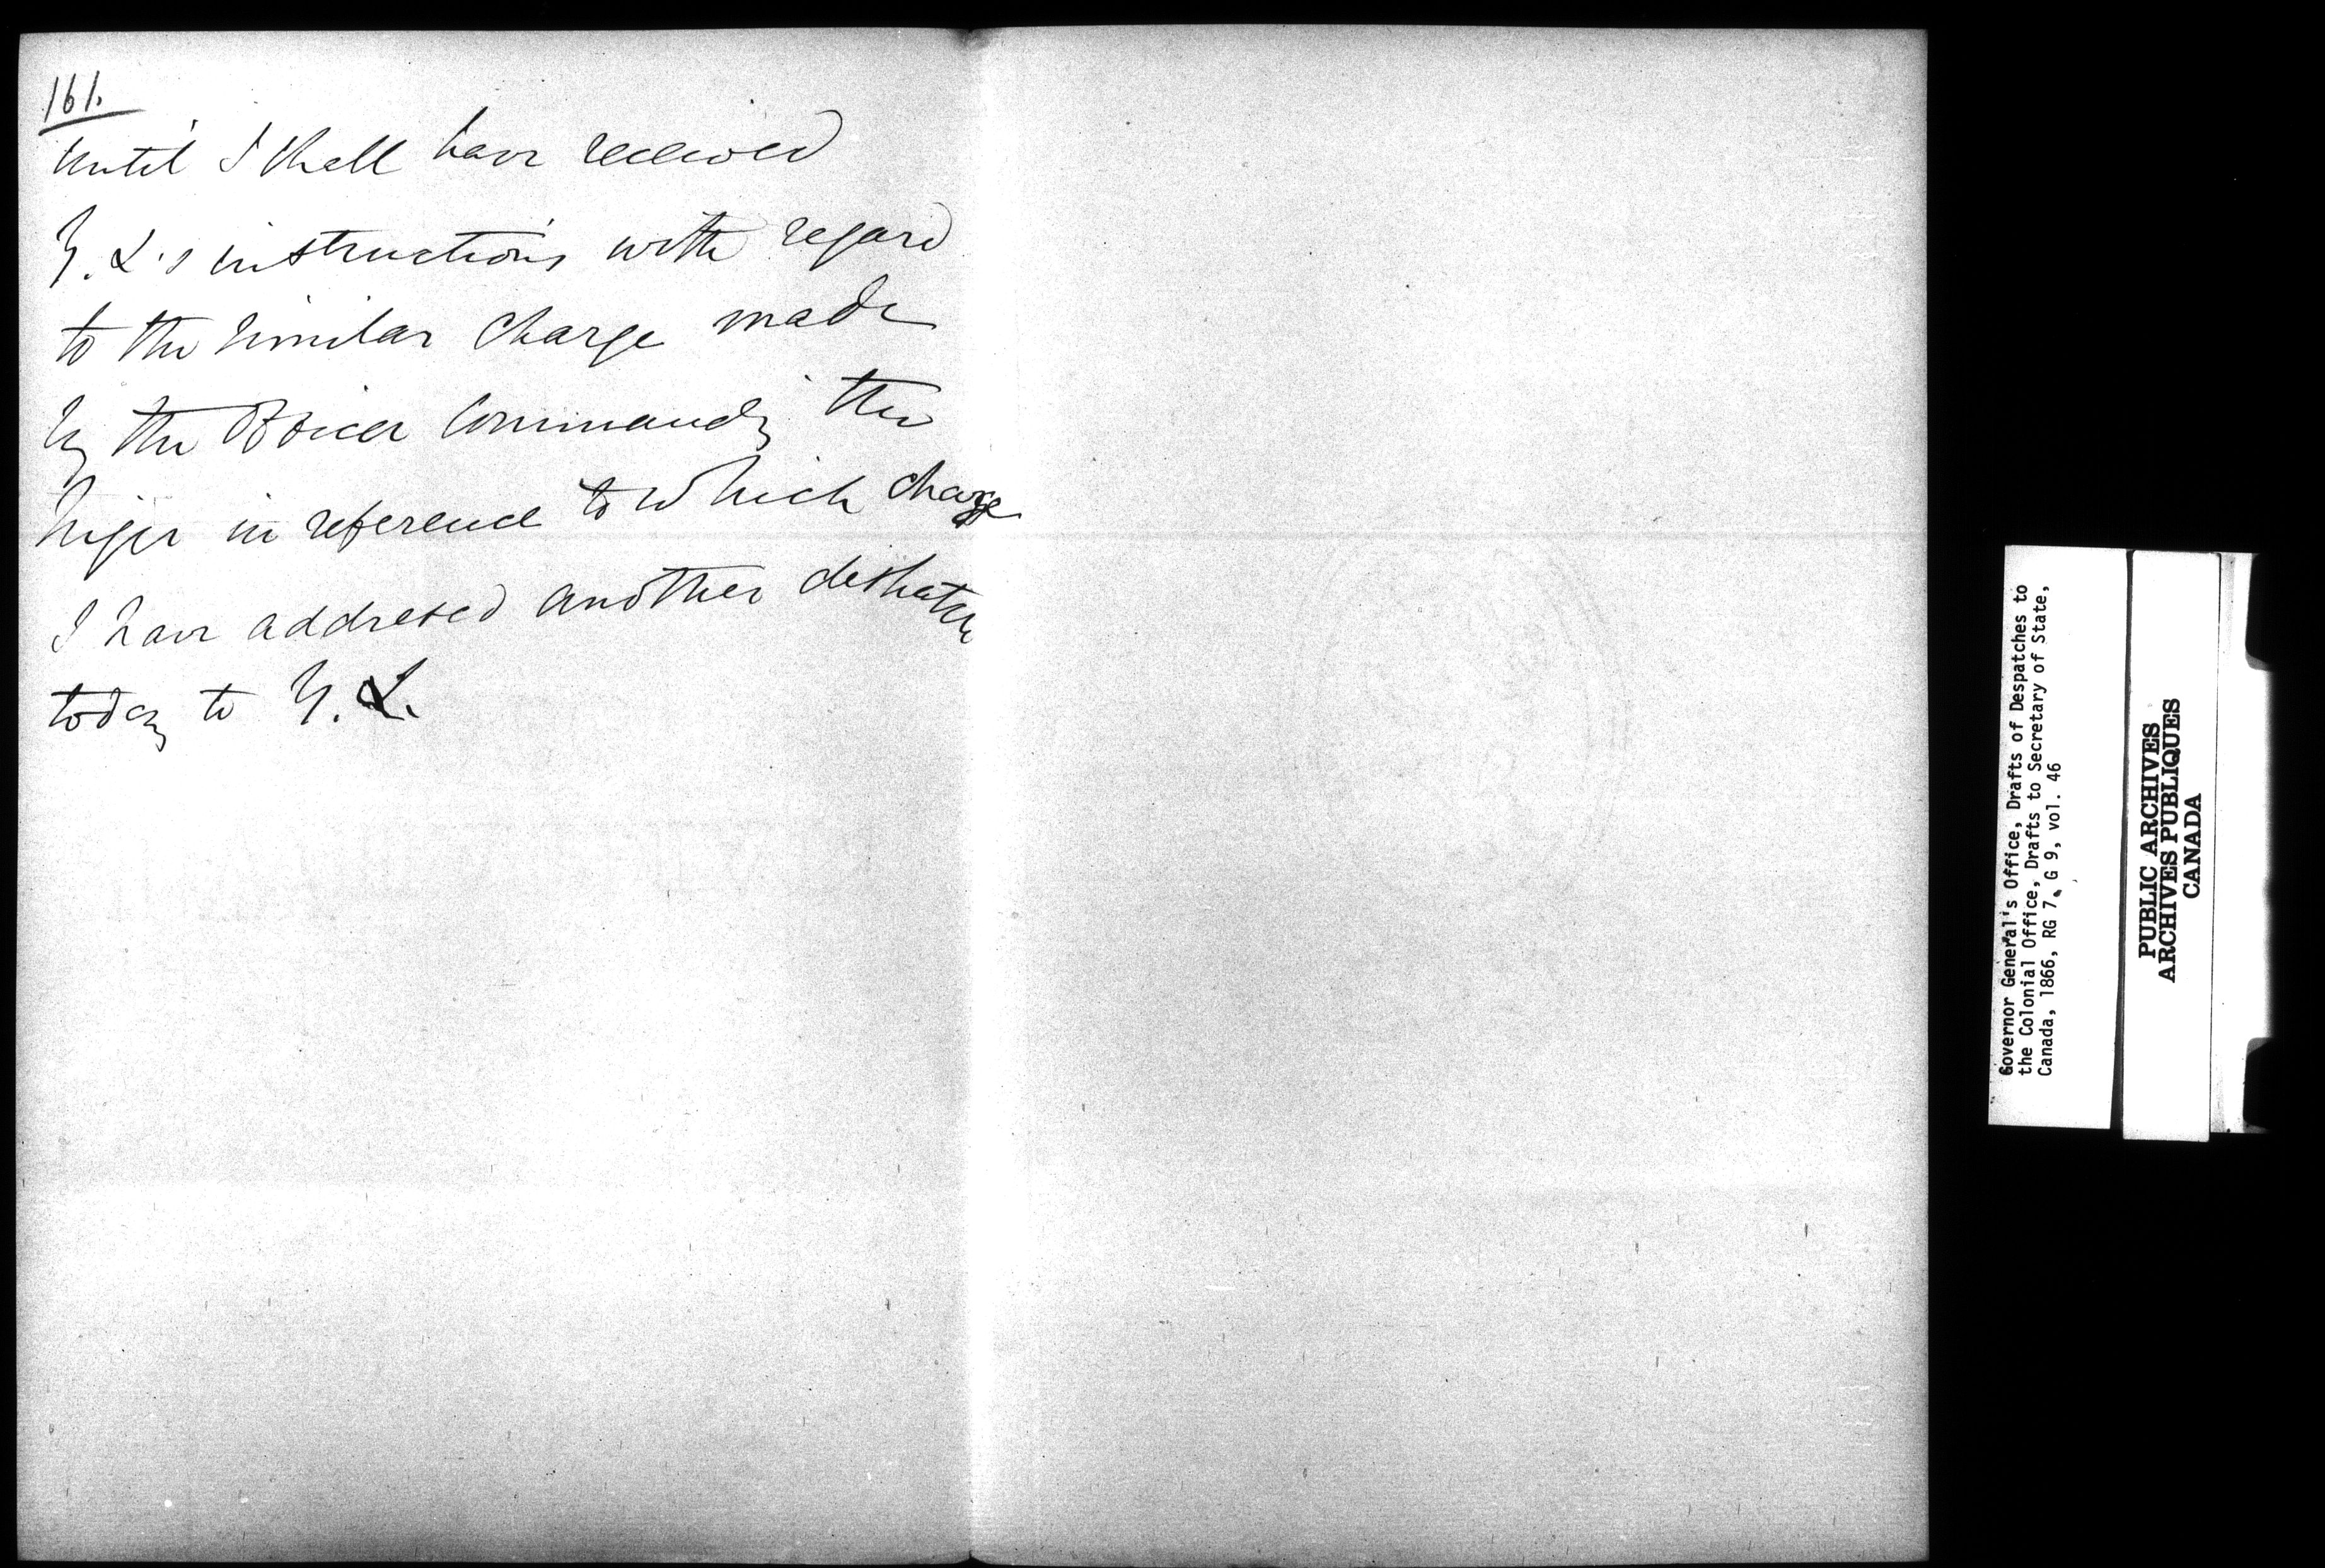 161.
until I shall have received
Y. L's instructions with regard
to the similar charge made
by the Officer Commandg the
Niger in reference to which charge
I have addressed another despatch
today to Y. L.
Governor General's Office, Drafts of Despatches to
the Colonial Office, Drafts to Secretary of State,
Canada, 1866, RG 7, G 9, vol. 46
PUBLIC ARCHIVES
ARCHIVES PUBLIQUES
CANADA